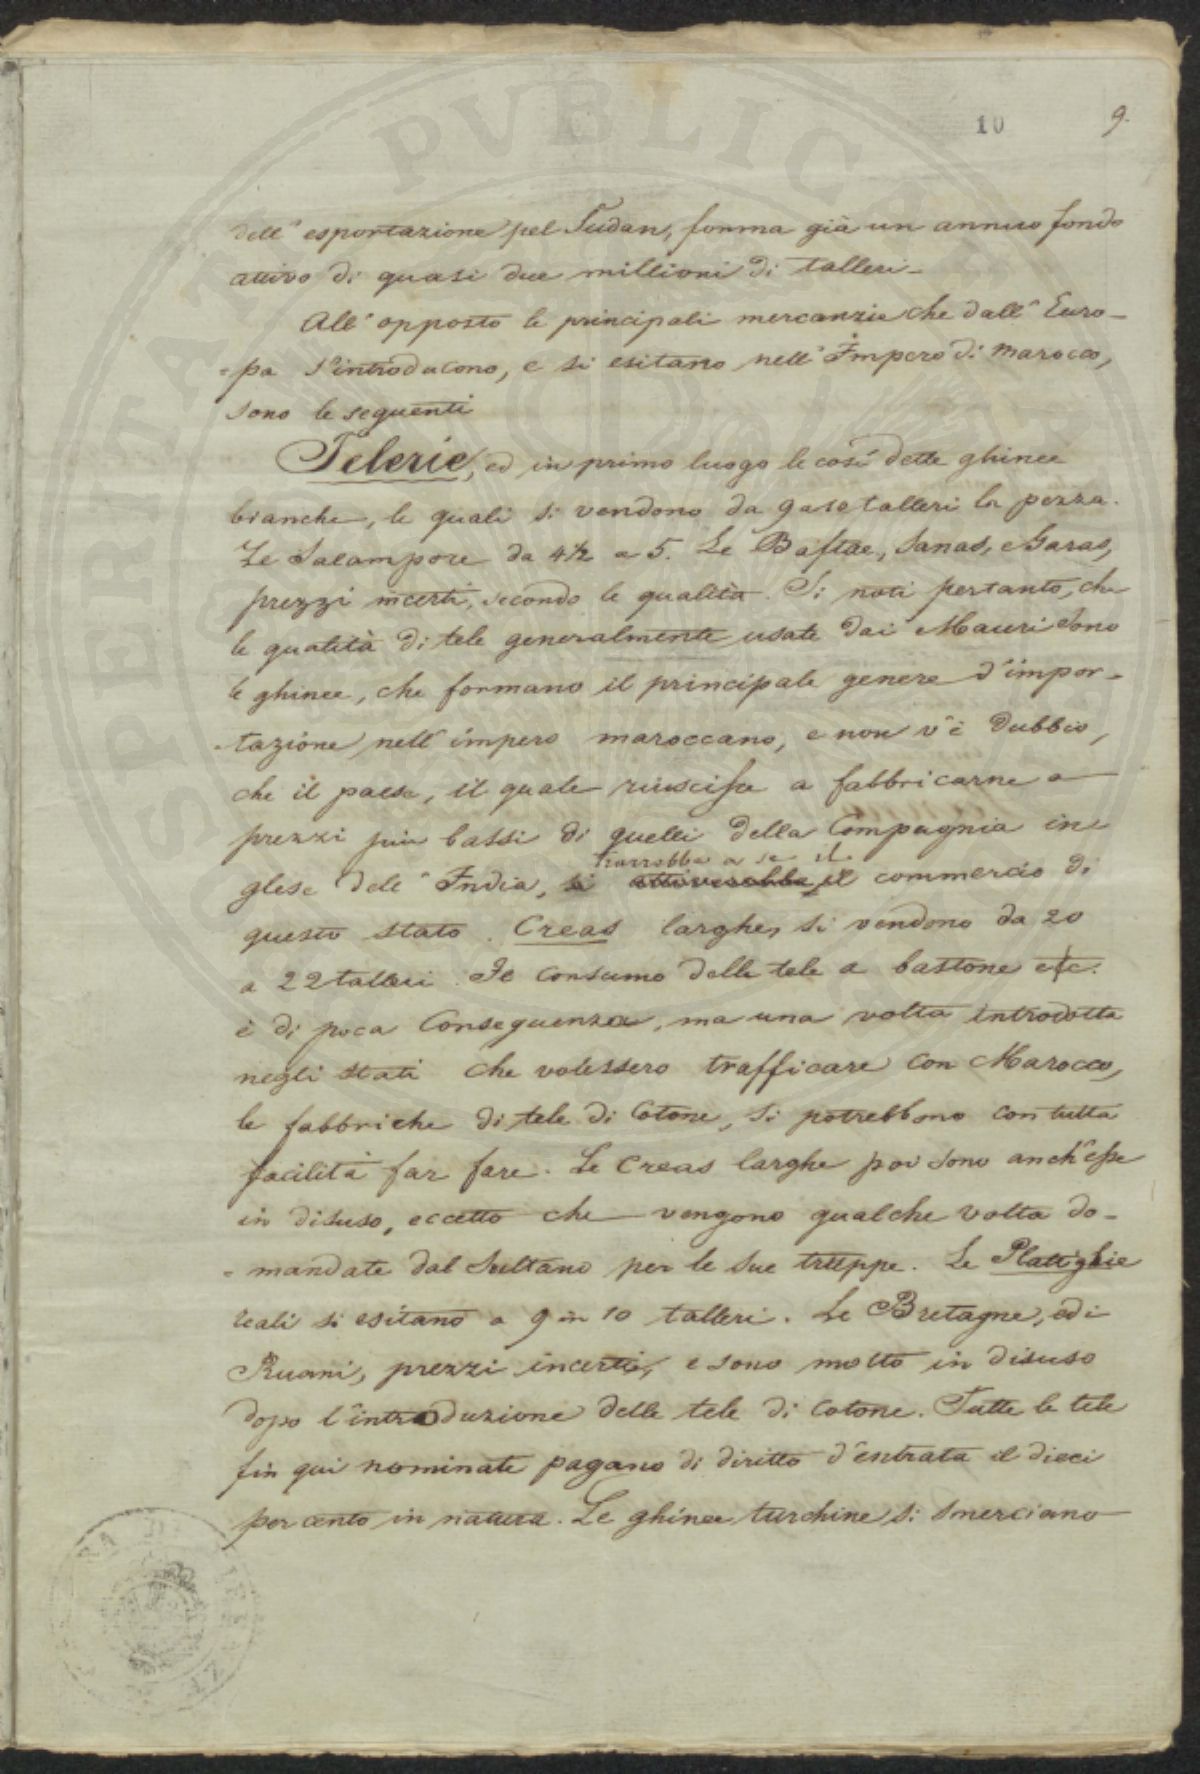 10
9.
dell'esportazione pel Sudan, forma già un annuo fondo
attivo di quasi due millioni di talleri.
All'opposto le principali mercanzie che dall'Euro-
=pa s'introducono, e si esitano nell'Impero di Marocco,
sono le seguenti
Telerie, ed in primo luogo le così dette ghinee
bianche, le quali si vendono da 9 a 10 talleri la pezza.
Le Salampore da 4½ a 5. Le Baftae, Sanas, e Garas,
prezzi incerti, secondo le qualità. Si noti pertanto, che
le qualità di tele generalmente usate dai Mauri sono
le ghinee, che formano il principale genere d'impor-
=tazione nell'impero maroccano, e non v'è dubbio,
che il paese, il quale riuscisse a fabbricarne a
prezzi più bassi di quelli della Compagnia in-
trarrebbe a se il
glese dell'India, si attiverebbe il commercio di
questo stato. Creas larghe, si vendono da 20
a 22 talleri. Il consumo delle tele a bastone etc.
è di poca conseguenza, ma una volta introdotta
negli stati che volessero trafficare con Marocco,
le fabbriche di tele di Cotone, si potrebbono con tutta
facilità far fare. Le Creas larghe poi sono anch'esse
in disuso, eccetto che vengono qualche volta do-
=mandate dal Sultano per le sue truppe. Le Plattighie
reali si esitano a 9 in 10 talleri. Le Bretagne, ed i
Ruani, prezzi incerti, e sono molto in disuso
dopo l'introduzione delle tele di cotone. Tutte le tele
fin qui nominate pagano di diritto d'entrata il dieci
per cento in natura. Le ghinee turchine si smerciano